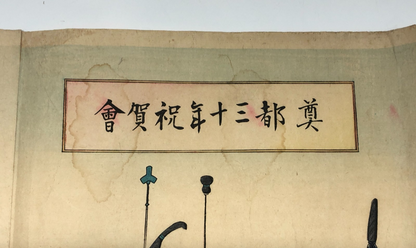 奠都三十年祝賀會